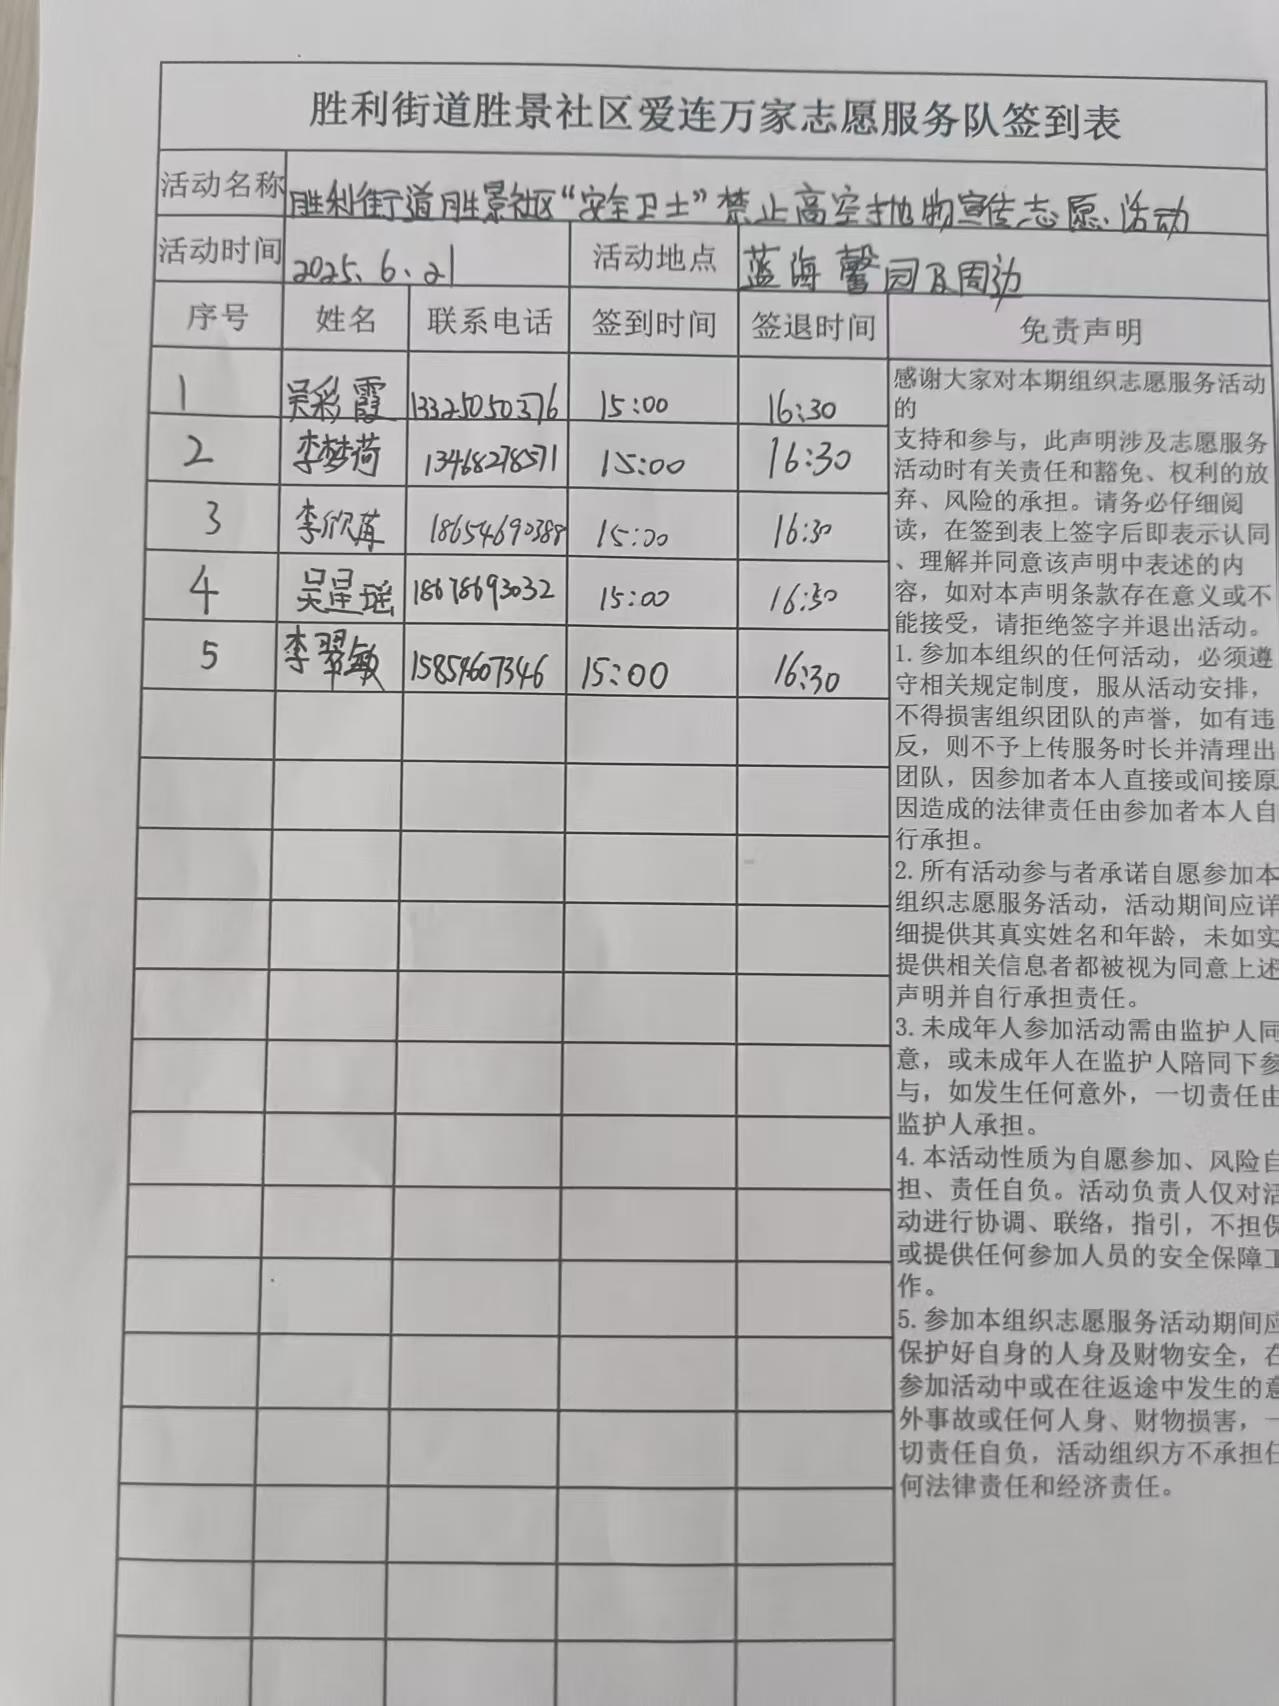 胜利街道胜景社区爱连万家志愿服务队签到表
活动名称 胜利街道胜景社区“安全卫士”禁止高空抛物宣传志愿活动
活动时间 2025.6.21 活动地点 蓝海馨园及周边
序号 姓名 联系电话 签到时间 签退时间 免责声明
1 吴彩霞 13325050376 15:00 16:30
2 李梦荷 13468278571 15:00 16:30
3 李欣苒 18654690388 15:00 16:30
4 吴星瑶 18678693032 15:00 16:30
5 李翠敏 15854607346 15:00 16:30
感谢大家对本期组织志愿服务活动
的
支持和参与，此声明涉及志愿服务
活动时有关责任和豁免、权利的放
弃、风险的承担。请务必仔细阅
读，在签到表上签字后即表示认同
、理解并同意该声明中表述的内
容，如对本声明条款存在意义或不
能接受，请拒绝签字并退出活动。
1.参加本组织的任何活动，必须遵
守相关规定制度，服从活动安排，
不得损害组织团队的声誉，如有违
反，则不予上传服务时长并清理出
团队，因参加者本人直接或间接原
因造成的法律责任由参加者本人自
行承担。
2.所有活动参与者承诺自愿参加本
组织志愿服务活动，活动期间应详
细提供其真实姓名和年龄，未如实
提供相关信息者都被视为同意上述
声明并自行承担责任。
3.未成年人参加活动需由监护人同
意，或未成年人在监护人陪同下参
与，如发生任何意外，一切责任由
监护人承担。
4.本活动性质为自愿参加、风险自
担、责任自负。活动负责人仅对活
动进行协调、联络，指引，不担保
或提供任何参加人员的安全保障工
作。
5.参加本组织志愿服务活动期间应
保护好自身的人身及财物安全，在
参加活动中或在往返途中发生的意
外事故或任何人身、财物损害，一
切责任自负，活动组织方不承担任
何法律责任和经济责任。